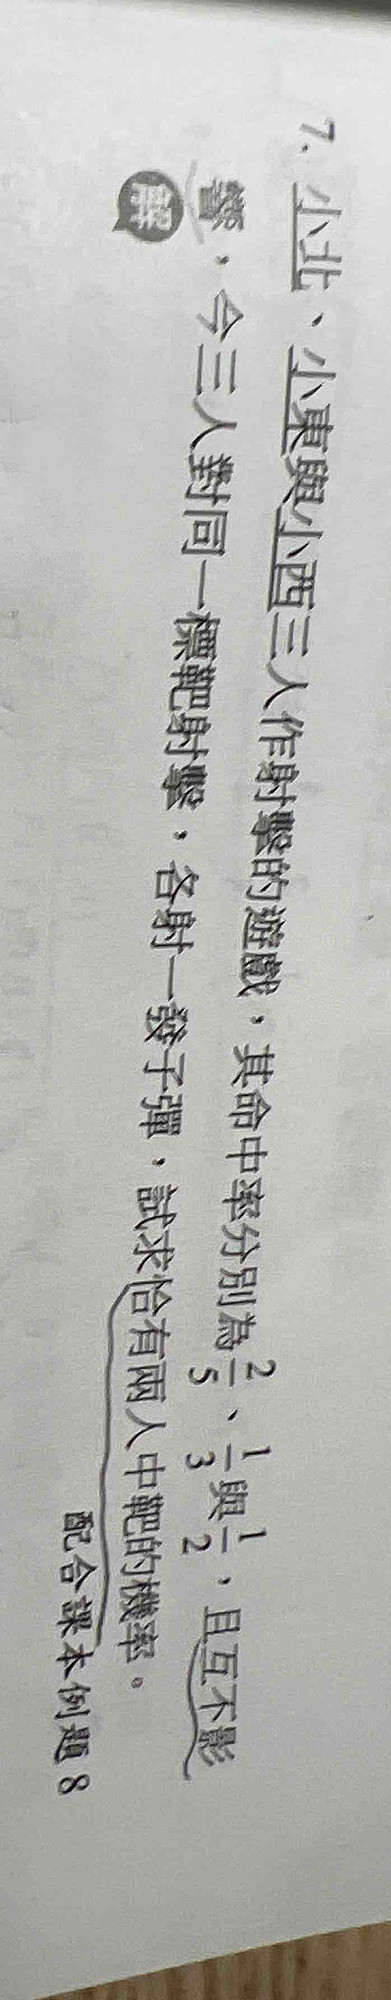 7. 小北、小東與小西三人作射擊的遊戲，其命中率分別為 2/5、1/3 與 1/2，且互不影
響，今三人對同一標靶射擊，各射一發子彈，試求恰有兩人中靶的機率。
配合課本例題 8
解